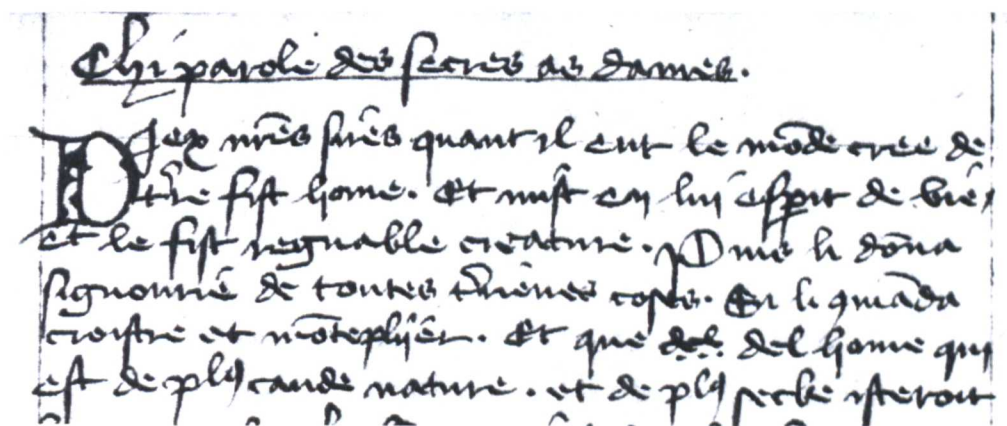 Chi parole des secres as dames.
Diex nr̄es sires quant il eut le mōde cree de
t're fist home. Et mist en lui esp̄it de vie,
et le fist regnable creature. Puis li dōna
signourie de toutes t'rienes coses. Et li 9māda
croistre et mōteplijer. Et que del del home qui
est de pl9 caude nature. et de pl9 secke isteroit